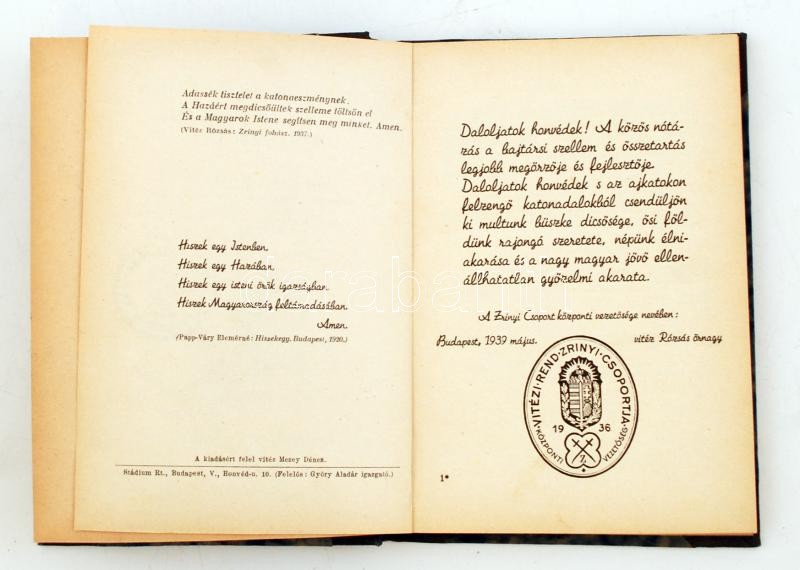 Adassék tisztelet a katonaeszménynek.
A Hazáért megdicsőültek szelleme töltsön el
És a Magyarok Istene segítsen meg minket. Amen.
(Vitéz Rózsás: Zrinyi fohász. 1937.)
Hiszek egy Istenben,
Hiszek egy Hazában,
Hiszek egy isteni örök igazságban.
Hiszek Magyarország feltámadásában.
Amen.
(Papp-Váry Elemérné: Hiszekegy. Budapest, 1920.)
A kiadásért felel vitéz Mezey Dénes.
Stádium Rt., Budapest, V., Honvéd-u. 10. (Felelős: Győry Aladár igazgató.)
Daloljatok honvédek! A közös nótá-
zás a bajtársi szellem és összetartás
legjobb megőrzője és fejlesztője.
Daloljatok honvédek s az ajkatokon
felzengő katonadalokból csendüljön
ki multunk büszke dicsősége, ősi föl-
dünk rajongó szeretete, népünk élni-
akarása és a nagy magyar jövő ellen-
állhatatlan győzelmi akarata.
A Zrinyi Csoport központi vezetősége nevében:
Budapest, 1939 május. vitéz Rózsás őrnagy
VITÉZI·REND·ZRINYI·CSOPORTJA
1936
KÖZPONTI VEZETŐSÉG
Z
1*